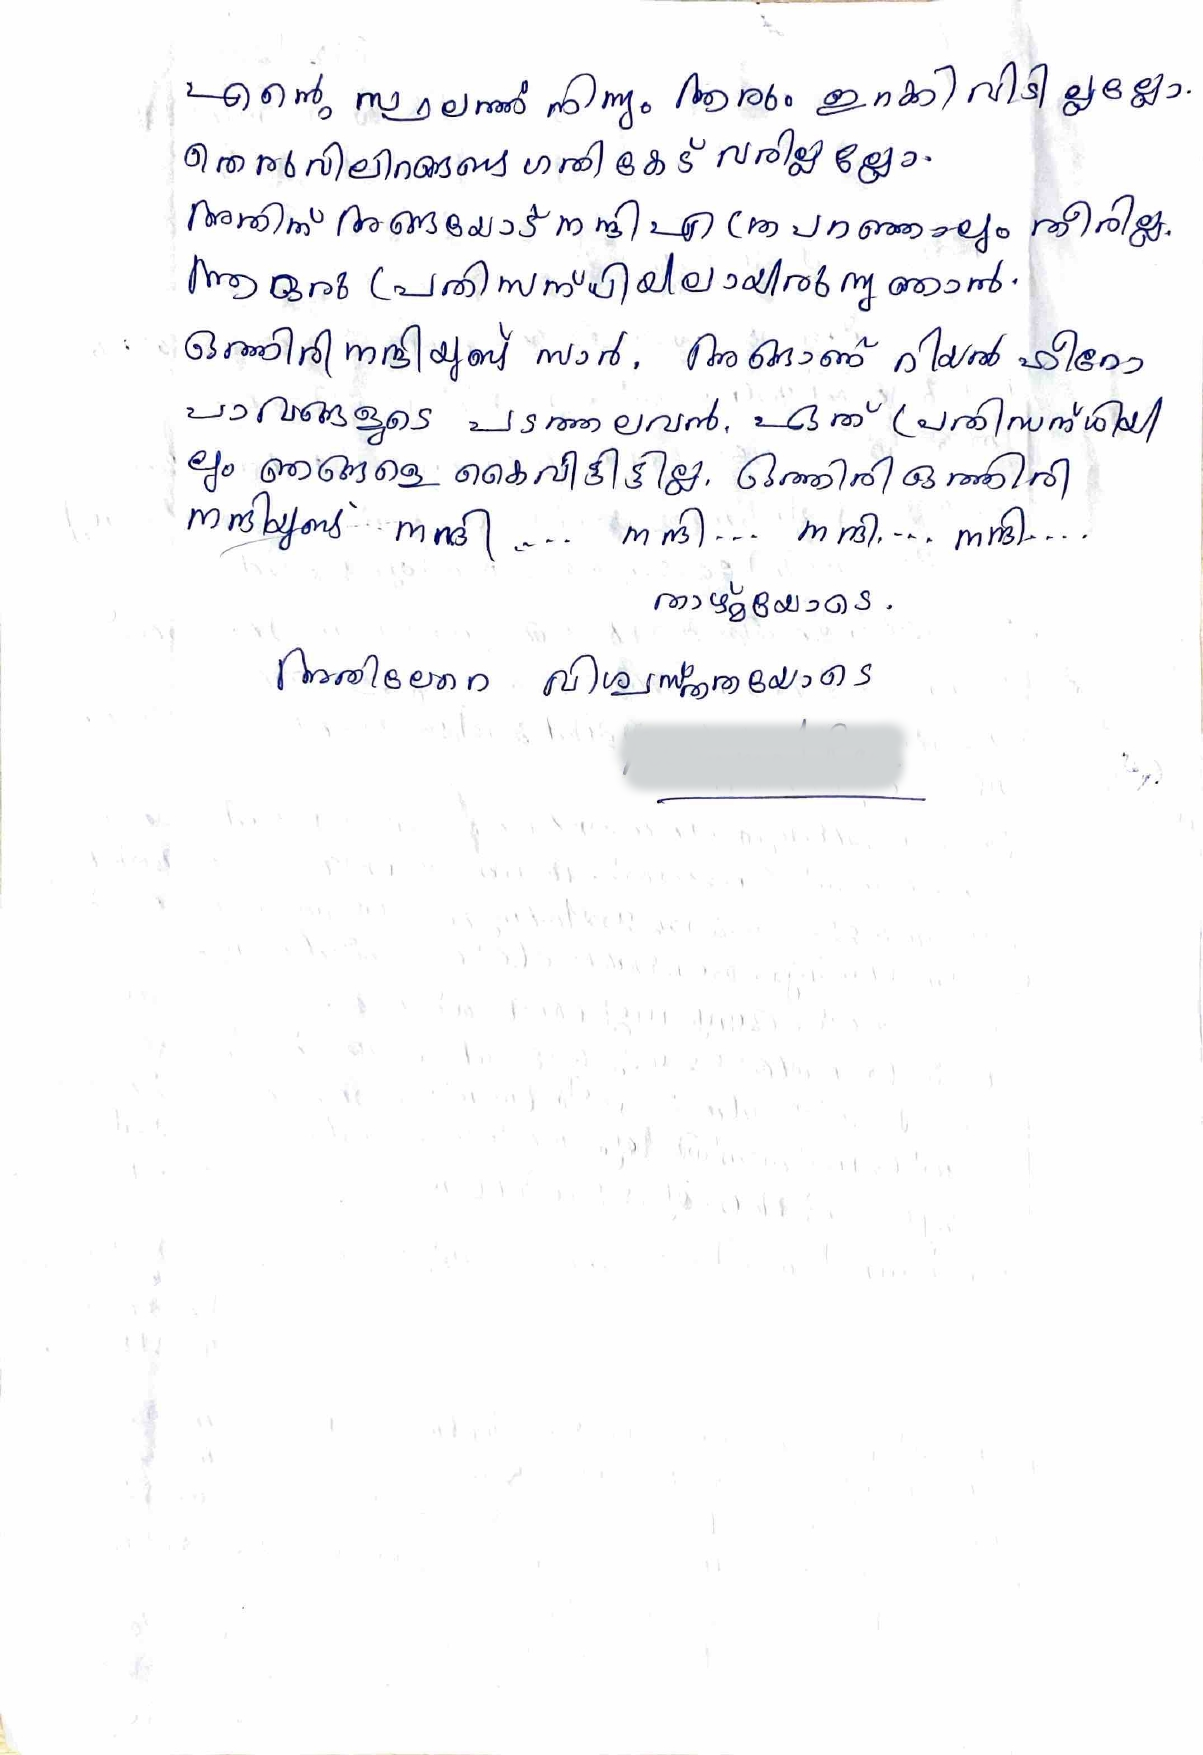 എന്റെ സ്ഥലത്ത് നിന്നും ആരും ഇറക്കി വിടില്ലല്ലോ.
തെരുവിലിറങ്ങേണ്ട ഗതികേട് വരില്ലല്ലോ.
അതിന് അങ്ങയോട് നന്ദി എത്ര പറഞ്ഞാലും തീരില്ല.
ആ ഒരു പ്രതിസന്ധിയിലായിരുന്നു ഞാൻ.
ഒത്തിരി നന്ദിയുണ്ട് സാർ. അങ്ങാണ് റിയൽ ഹീറോ
പാവങ്ങളുടെ പടത്തലവൻ. ഏത് പ്രതിസന്ധിയി
ലും ഞങ്ങളെ കൈവിട്ടിട്ടില്ല. ഒത്തിരി ഒത്തിരി
നന്ദിയുണ്ട് നന്ദി .... നന്ദി... നന്ദി.... നന്ദി....
താഴ്മയോടെ.
അതിലേറെ വിശ്വസ്തതയോടെ